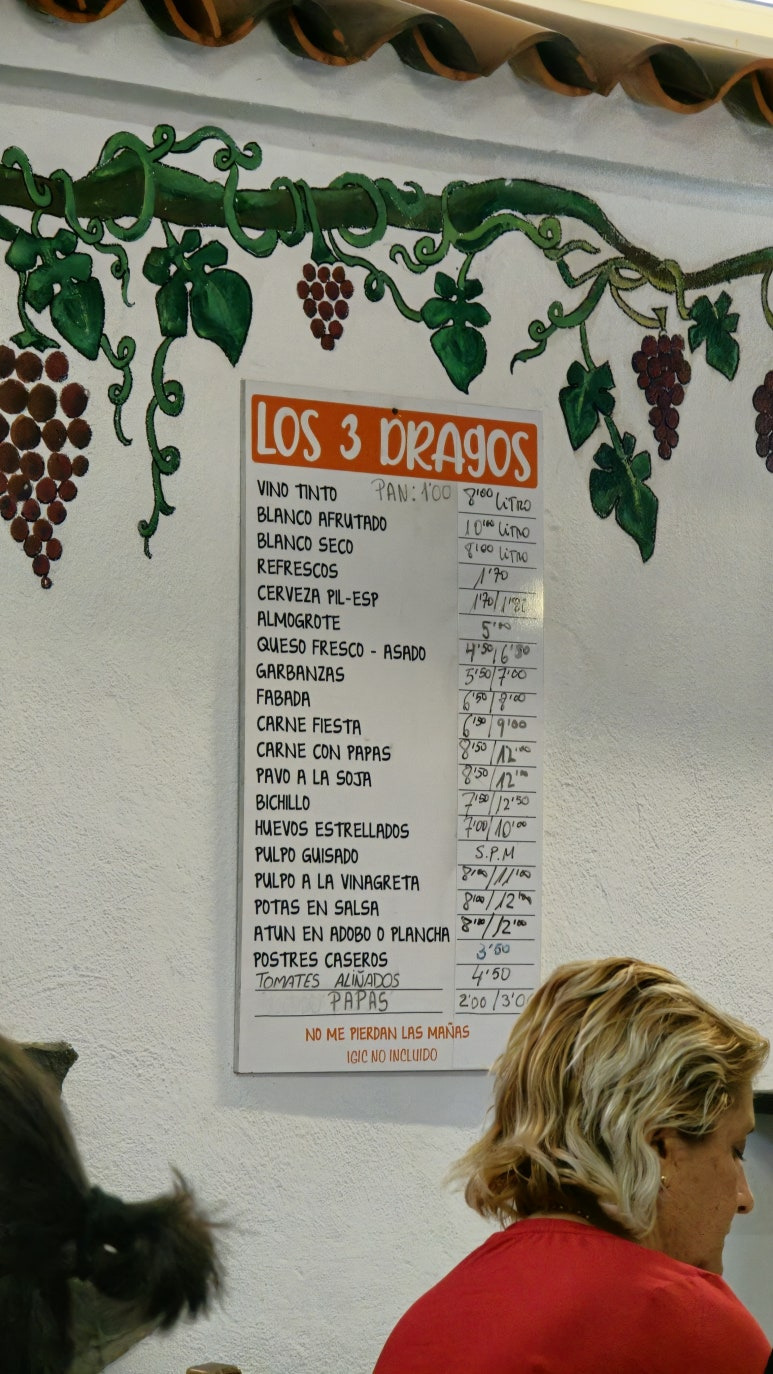 LOS 3 DRAGOS
VINO TINTO PAN: 1'00 8'00 LITRO
BLANCO AFRUTADO 10'00 LITRO
BLANCO SECO 8'00 LITRO
REFRESCOS 1'70
CERVEZA PIL-ESP 1'70/1'80
ALMOGROTE 5'00
QUESO FRESCO - ASADO 4'50/6'50
GARBANZAS 5'50/7'00
FABADA 6'50/8'00
CARNE FIESTA 6'50/9'00
CARNE CON PAPAS 8'50/12'00
PAVO A LA SOJA 8'50/12'00
BICHILLO 7'50/12'50
HUEVOS ESTRELLADOS 7'00/10'00
PULPO GUISADO S.P.M
PULPO A LA VINAGRETA 8'00/11'00
POTAS EN SALSA 8'00/12'00
ATUN EN ADOBO O PLANCHA 8'00/12'00
POSTRES CASEROS 3'50
TOMATES ALIÑADOS 4'50
PAPAS 2'00/3'0
NO ME PIERDAN LAS MAÑAS
IGIC NO INCLUIDO